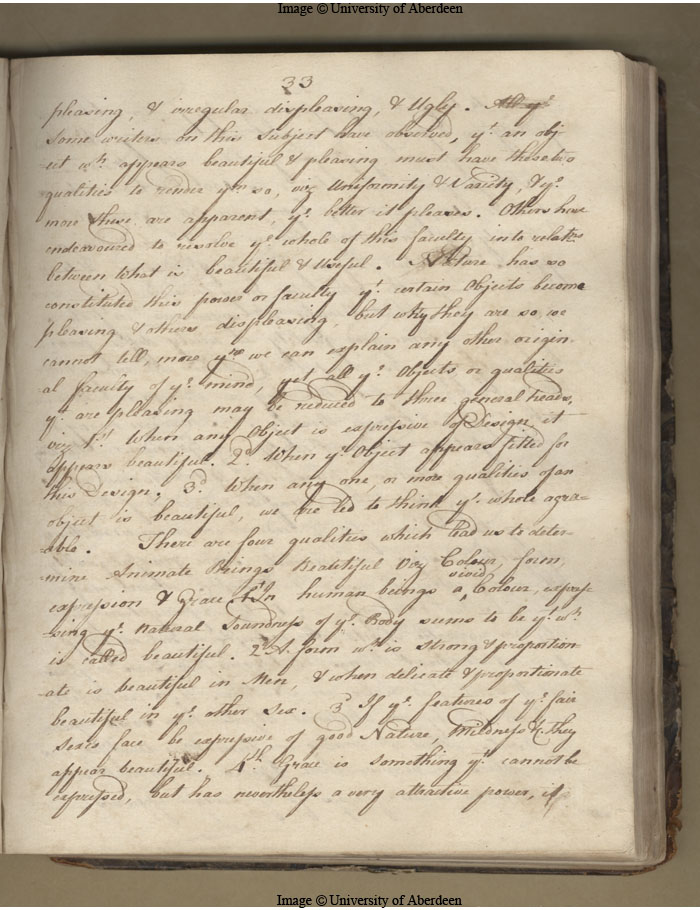 Image © University of Aberdeen
33
pleasing, & irregular displeasing, & Ugly. All yt
some writers on this subject have observed, yt. an obj-
-ect wh. appears beautiful & pleasing must have these two
qualities to render ym so, viz Uniformity & Variety, & ye.
more these are apparent, ye. better it pleases. Others have
endeavoured to resolve ye. whole of this faculty into relatns
between what is beautiful & Useful. Nature has so
constituted this power or faculty yt. certain Objects become
pleasing & others displeasing, but why they are so, we
cannot tell, more yn we can explain any other origin-
-al faculty of ye. mind, yet all ye. Objects or qualities
yt. are pleasing may be reduced to three general heads,
viz 1st When any Object is expressive of Design, it
appears beautiful. 2d. When ye. Object appears fitted for
this Design. 3d. When any one, or more qualities of an
object is beautiful, we are led to think ye. whole agree-
-able. There are four qualities which lead us to deter-
-mine Animate Beings Beautiful viz Colour, form,
expression & Grace 1st In human beings a vivid Colour, expres-
-sing ye. Natural Soundness of ye. Body seems to be yt. wh.
is called beautiful. 2d A form wh. is strong & proportion-
-ate is beautiful in Men, & when delicate & proportionate
beautiful in ye. other sex. 3d If ye. features of ye. fair
sex's face be expressive of good Nature, Mildness &c they
appear beautiful. 4th. Grace is something yt. cannot be
expressed, but has nevertheless a very attractive power, if
Image © University of Aberdeen